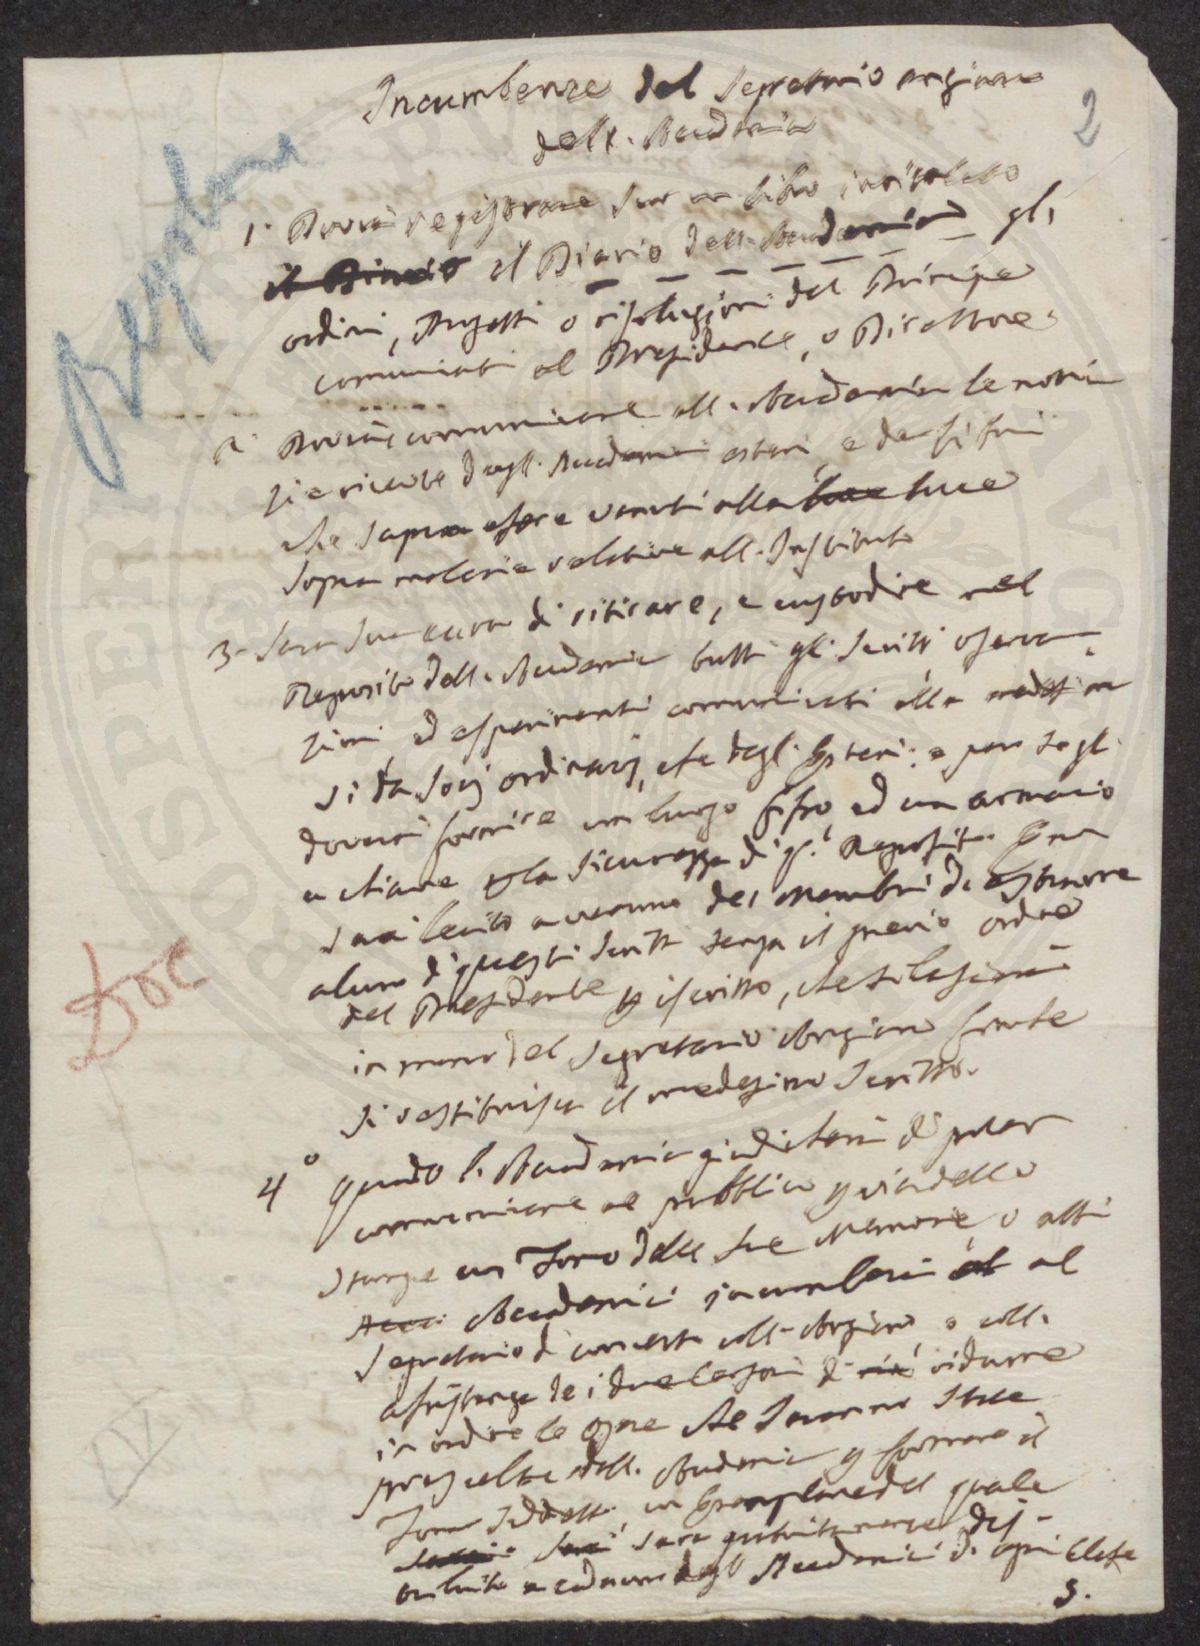 Incumbenze del Segretario anziano
dell'Accademia
2
Regolam
1° Dovrà registrare sur un libro intitolato
il Diario il Diario dell'Accademia gli
ordini, Progetti o risoluzioni del Principe
comunicati al Presidente, o Direttore.
2° Dovrà communicare all'Accademia le noti
zie ricevute dagli Accademici esteri e da
che sapra essere venuti alla luce luce
sopra materie relative all'Instituto
3° Sarà sua cura di ritirare, e custodire nel
Reposito dell'Accademia tutti gli scritti, osserva
zioni ed esperimenti comunicati alla medesima
si da Socj ordinarj, che dagli Esteri: e
dovrà fornire un luogo fisso ed un armario
a chiave per la sicurezza di Reposito.
sarà lecito a veruno dei Membri di estrarre
alcuno di questi scritti senza il previo ordine
del Presidente per iscritto, che si lascierà
in mano del Segretario Anziano finche
si restituisca il medesimo scritto.
Doc
4° Quando l'Accademia giudicherà di poter
communicare al pubblico per via delle
stampe un Tomo delle sue Memorie, o atti
Acca Accademici incomberà al al
Segretario di concerto coll'Anziano, o coll'
assistenza de i due Censori di ridurre
in ordine le opere che saranno state
prescelte dall'Accademia per formare il
Tomo suddetto, un Esemplare del quale
sarà sarà gratuitamente dis-
tribuito a cadauno degli Accademici di ogni Classe
IV
5.